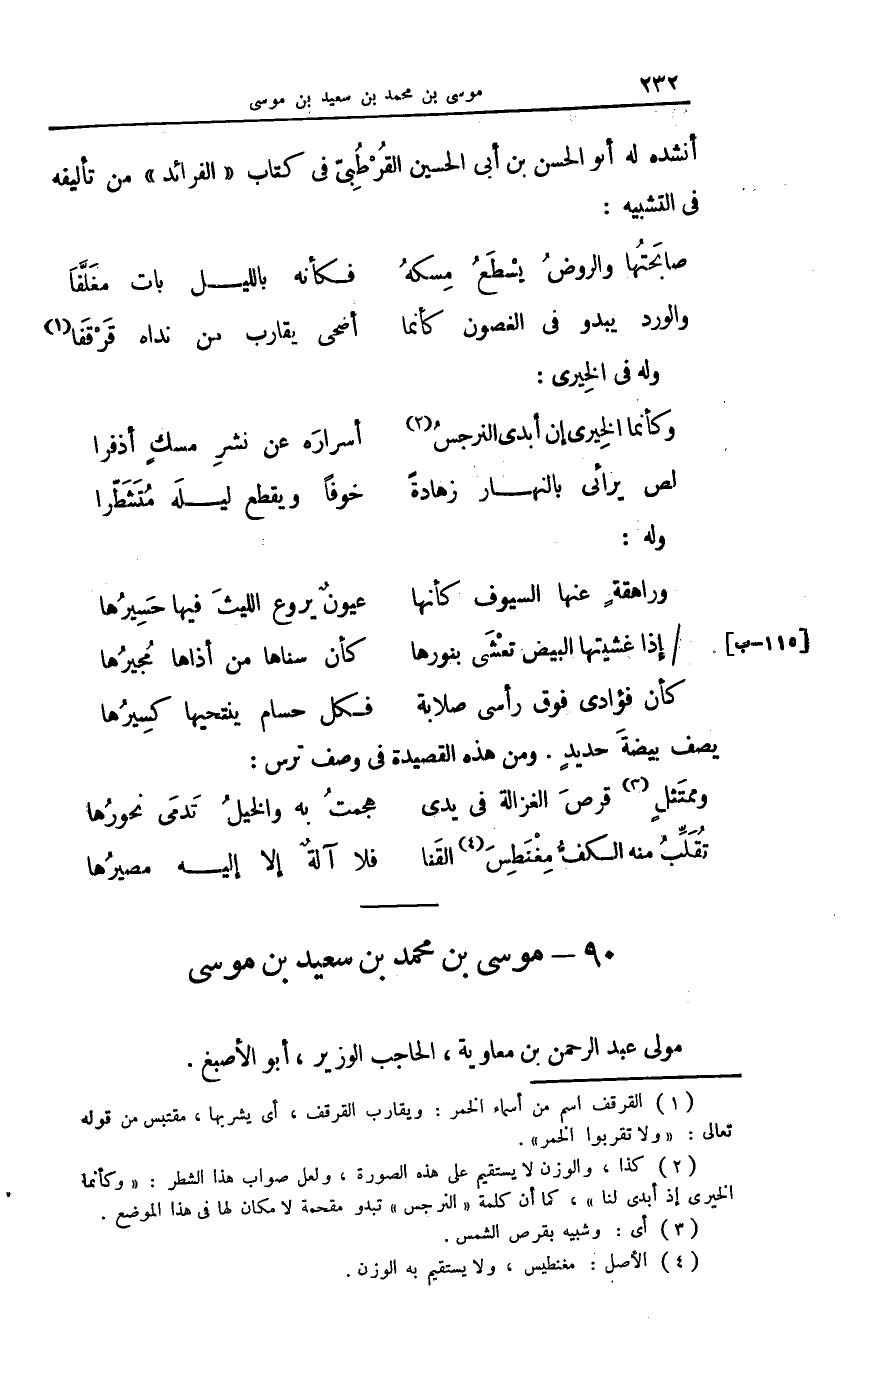 ٢٣٢
موسى بن محمد بن سعيد بن موسى
أنشده له أبو الحسن بن أبى الحسين القُرْطُبِىّ فى كتاب « الفرائد » من تأليفه
فى التشبيه :
صابَحتُها والروضُ يسْطَعُ مِسكهُ فـكأنه بالليـــل بات مغَلَّفَا
والورد يبدو فى الغصون كأنما أضحى يقارب من نداه قَرْقَفَا(١)
وله فى الخِيرى :
وكأنما الخِيرى إن أبدى النرجسُ(٢) أسرارَه عن نشرِ مسكٍ أذفرا
لص يرأى بالنهـــار زهادةً خوفاً ويقطع ليـــلَه مُتَشَطِّرا
وله :
وراهقةٍ عنها السيوف كأنها عيونٌ يروع الليثَ فيها حَسِيرُها
[١١٥-ب] / إذا غشيتها البيض تعْشَى بنورها كأن سناها من أذاها مُجيرُها
كأن فؤادى فوق رأسى صلابة فـكل حسام ينتحيها كَسِيرُها
يصف بيضةَ حديدٍ . ومن هذه القصيدة فى وصف ترس :
وممتَثلٍ(٣) قرصَ الغزالة فى يدى هجمتُ به والخيلُ تَدمَى نحورُها
تُقلِّبُ منه الـكفُّ مِغْنَطِسَ(٤) القَنا فلا آلةٌ إلا إليـــه مصيرُها
٩٠ – موسى بن محمد بن سعيد بن موسى
مولى عبد الرحمن بن معاوية ، الحاجب الوزير ، أبو الأصبغ .
(١) القرقف اسم من أسماء الخمر : ويقارب القرقف ، أى يشربها ، مقتبس من قوله
تعالى : « ولا تقربوا الخمر» .
(٢) كذا ، والوزن لا يستقيم على هذه الصورة ، ولعل صواب هذا الشطر : « وكأنما
الخيرى إذ أبدى لنا » ، كما أن كلمة « النرجس » تبدو مقحمة لا مكان لها فى هذا الموضع .
(٣) أى : وشبيه بقرص الشمس .
(٤) الأصل : مغنطيس ، ولا يستقيم به الوزن .